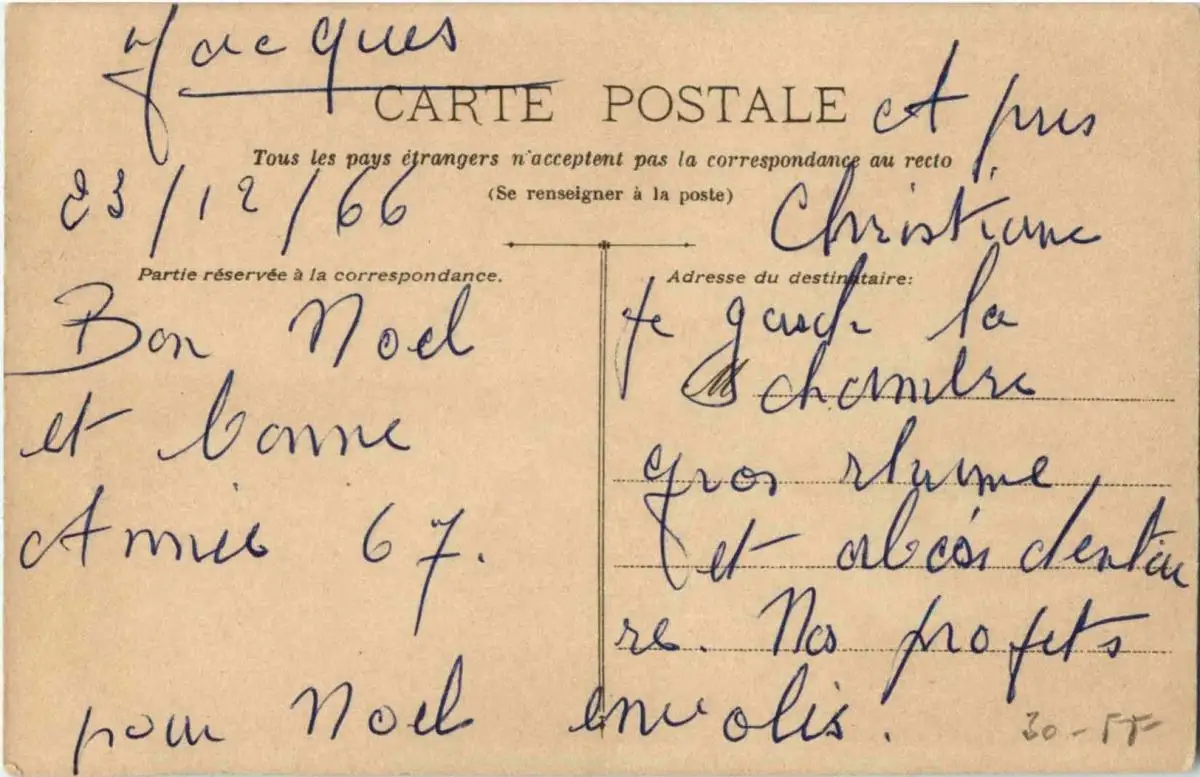 Jacques
CARTE POSTALE
Tous les pays étrangers n'acceptent pas la correspondance au recto
(Se renseigner à la poste)
23/12/66
Partie réservée à la correspondance.
Bon Noel
et bonne
Année 67.
Apres
Christiane
Adresse du destinataire:
je garde la
chambre
gros rhume
et abcés dentai
re. Nos projets
pour Noel envolés.